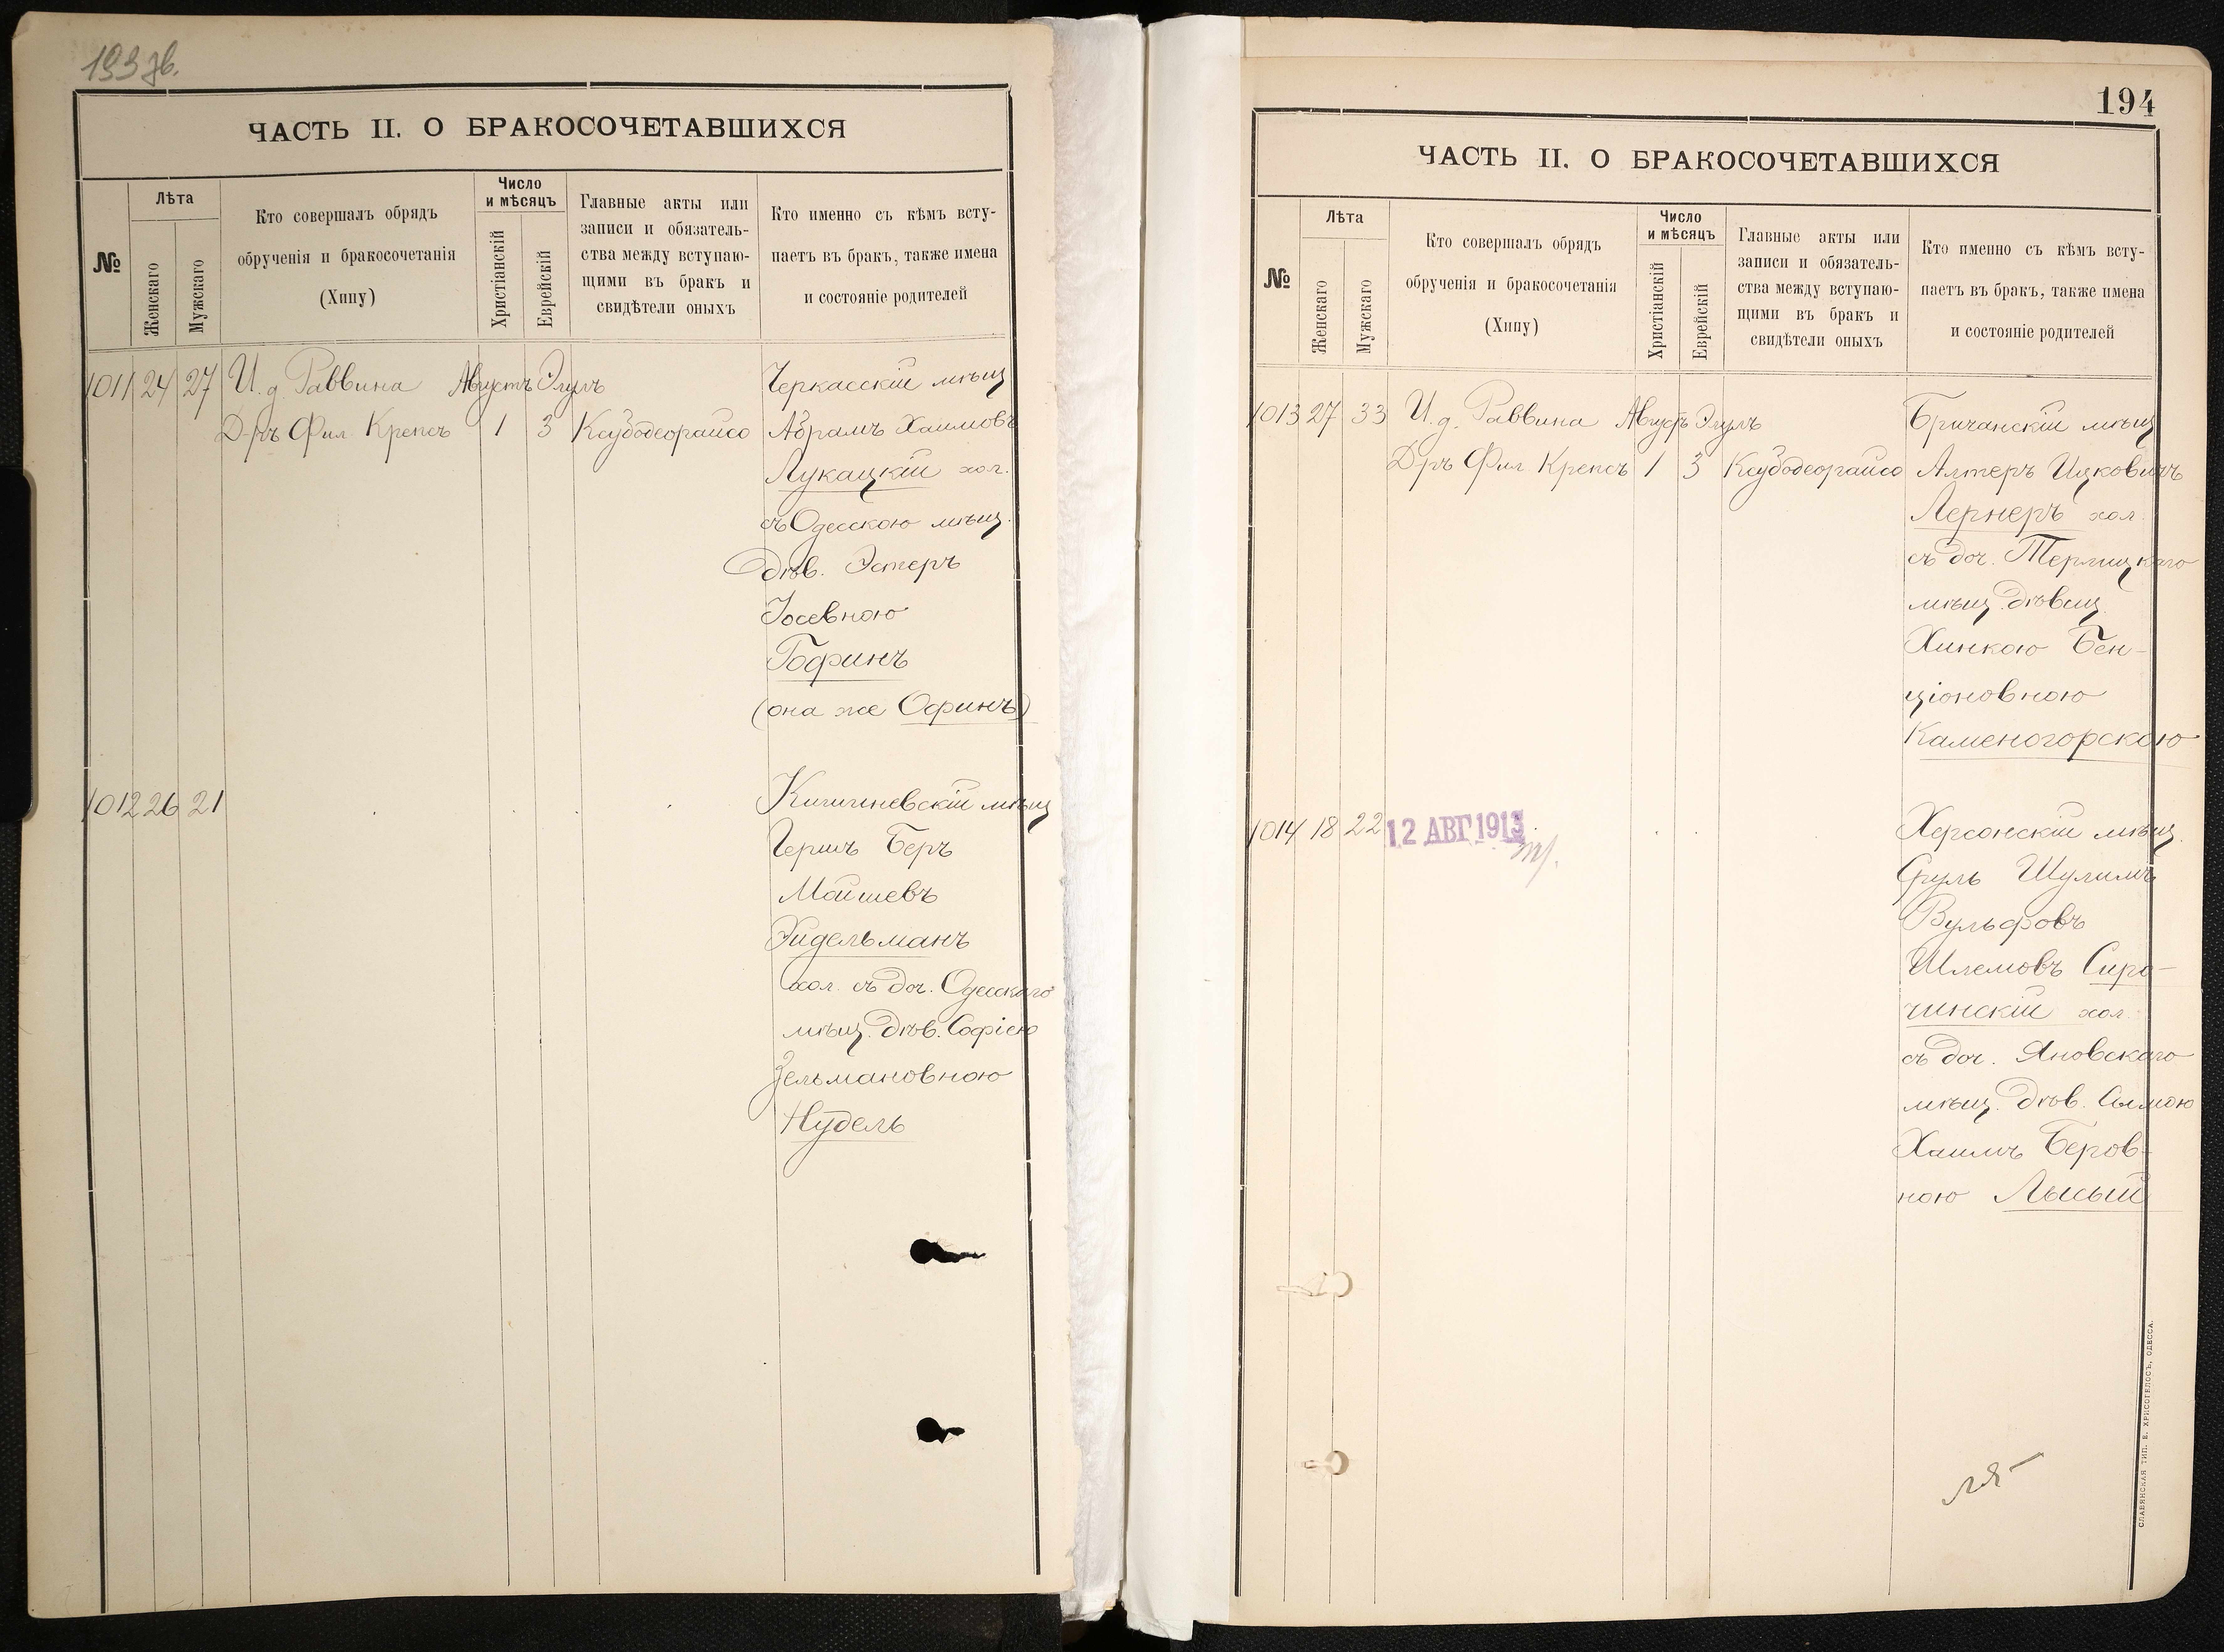 193 зв.
ЧАСТЬ II. О БРАКОСОЧЕТАВШИХСЯ
№
Лѣта
Женскаго
Мужскаго
Кто совершалъ обрядъ
обрученія и бракосочетанія
(Хипу)
Число
и мѣсяцъ
Христіанскій
Еврейскій
Главные акты или
записи и обязатель-
ства между вступаю-
щими въ бракъ и
свидѣтели оныхъ
Кто именно съ кѣмъ всту-
паетъ въ бракъ, также имена
и состояніе родителей
1011 24 27 И. д. Раввина Августъ Элулъ Черкасскій мѣщ
Д-ръ Фил. Крепсъ 1 3 Ксубодеорайсо Абрамъ Хаимовъ
Лукацкій хол.
съ Одесскою мѣщ.
дѣв. Эстеръ
Іосевною
Гофинъ
(она же Офинъ)
1012 26 21 Кишиневскій мѣщ
Гершъ Беръ
Мойшевъ
Эйдельманъ
хол. съ доч. Одесскаго
мѣщ. дѣв. Софіею
Зельмановною
Нудель
194
ЧАСТЬ II. О БРАКОСОЧЕТАВШИХСЯ
№
Лѣта
Женскаго
Мужскаго
Кто совершалъ обрядъ
обрученія и бракосочетанія
(Хипу)
Число
и мѣсяцъ
Христіанскій
Еврейскій
Главные акты или
записи и обязатель-
ства между вступаю-
щими въ бракъ и
свидѣтели оныхъ
Кто именно съ кѣмъ всту-
паетъ въ бракъ, также имена
и состояніе родителей
1013 27 33 И. д. Раввина Августъ Элулъ Бричанскій мѣщ
Д-ръ Фил. Крепсъ 1 3 Ксубодеорайсо Алтеръ Ицковичъ
Лернеръ хол.
съ доч. Терлицкаго
мѣщ. дѣвиц.
Хинкою Бен-
ціоновною
Каменогорскою
1014 18 22 12 АВГ 1913 Херсонскій мѣщ.
Сруль Шулимъ
Вульфовъ
Шлемовъ Сиро-
чинскій хол.
съ доч. Яновскаго
мѣщ. дѣв. Сымою
Хаимъ Беров-
ною Лысый
СЛАВЯНСКАЯ ТИП. Е. ХРИСОГЕЛОСЪ, ОДЕССА.